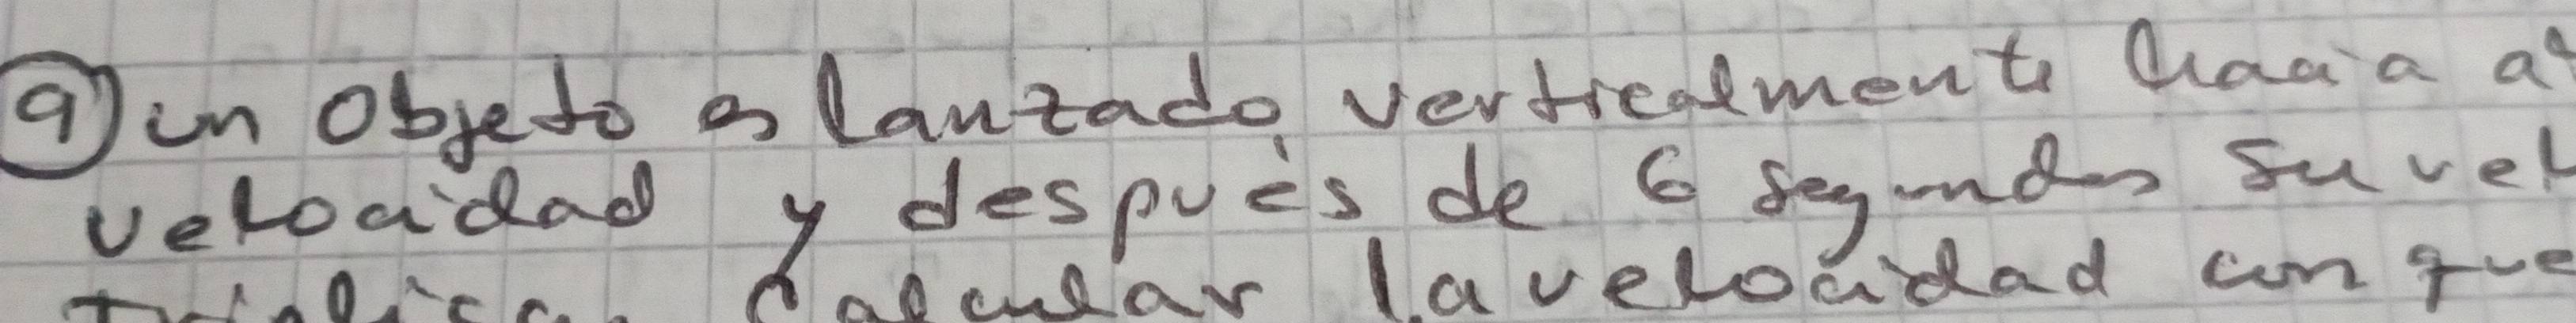 9) un objeto es lanzado verticalmente hacia a
velocidad y después de 6 segundos su vel
Triplica. Calcular la velocidad con que